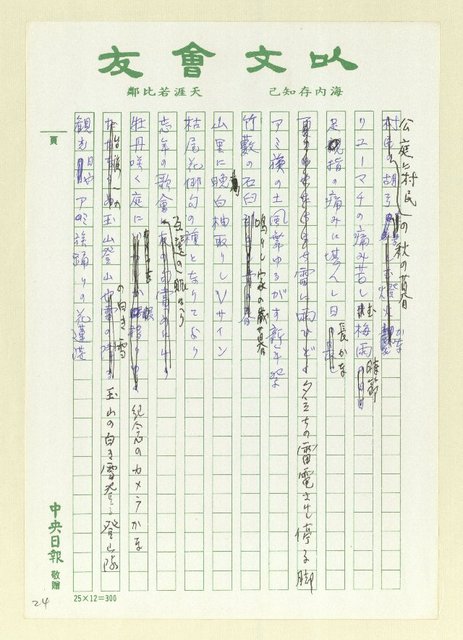 以文會友
海內存知己　天涯若比鄰
公庭に村民の秋の暮
リユーマチの痛み苦しむ梅雨の時節
足親指の痛みに堪へし日長かな
夕立ちの雷電さも停る脚
アミ族の土風葉ゆるがす新年祭
竹藪の石臼鳴りし家の歳暮
山里に晩白柚取りしVサイン
枯尾花俳句の種となりており
忘年の歌會互選の賑はう
牡丹咲く庭に記念のカメラかな
玉山登山の白き雪
玉山の白き雪登る登山隊
観光 アミ族踊りの花蓮港
頁
中央日報 敬贈
25×12=300
24